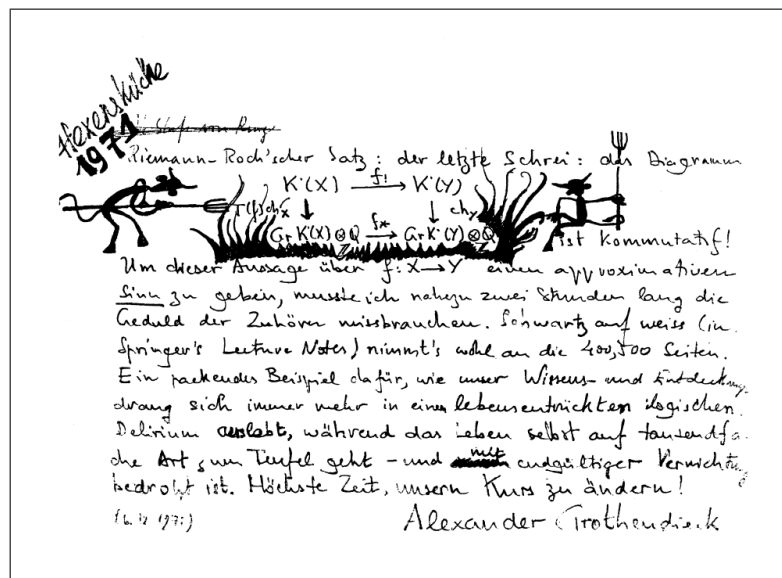 Hexenküche
1971
Riemann-Roch'scher Satz: der letzte Schrei: das Diagramm
K·(X) f! K·(Y)
chx chy
Gr K·(X) ⊗ Q f* Gr K·(Y) ⊗ Q
Z Z
ist kommutatif!
Um dieser Aussage über f: X → Y einen approximativen
Sinn zu geben, musste ich nahezu zwei Stunden lang die
Geduld der Zuhörer missbrauchen. Schwartz auf weiss (in
Springer's Lecture Notes) nimmt's wohl an die 400, 500 Seiten.
Ein packendes Beispiel dafür, wie unser Wissens- und Entdeckungs-
drang sich immer mehr in einem lebensentrückten logischen
Delirium auslebt, während das Leben selbst auf tausendfa-
che Art zum Teufel geht - und mit endgültiger Vernichtung
bedroht ist. Höchste Zeit, unsern Kurs zu ändern!
Alexander Grothendieck